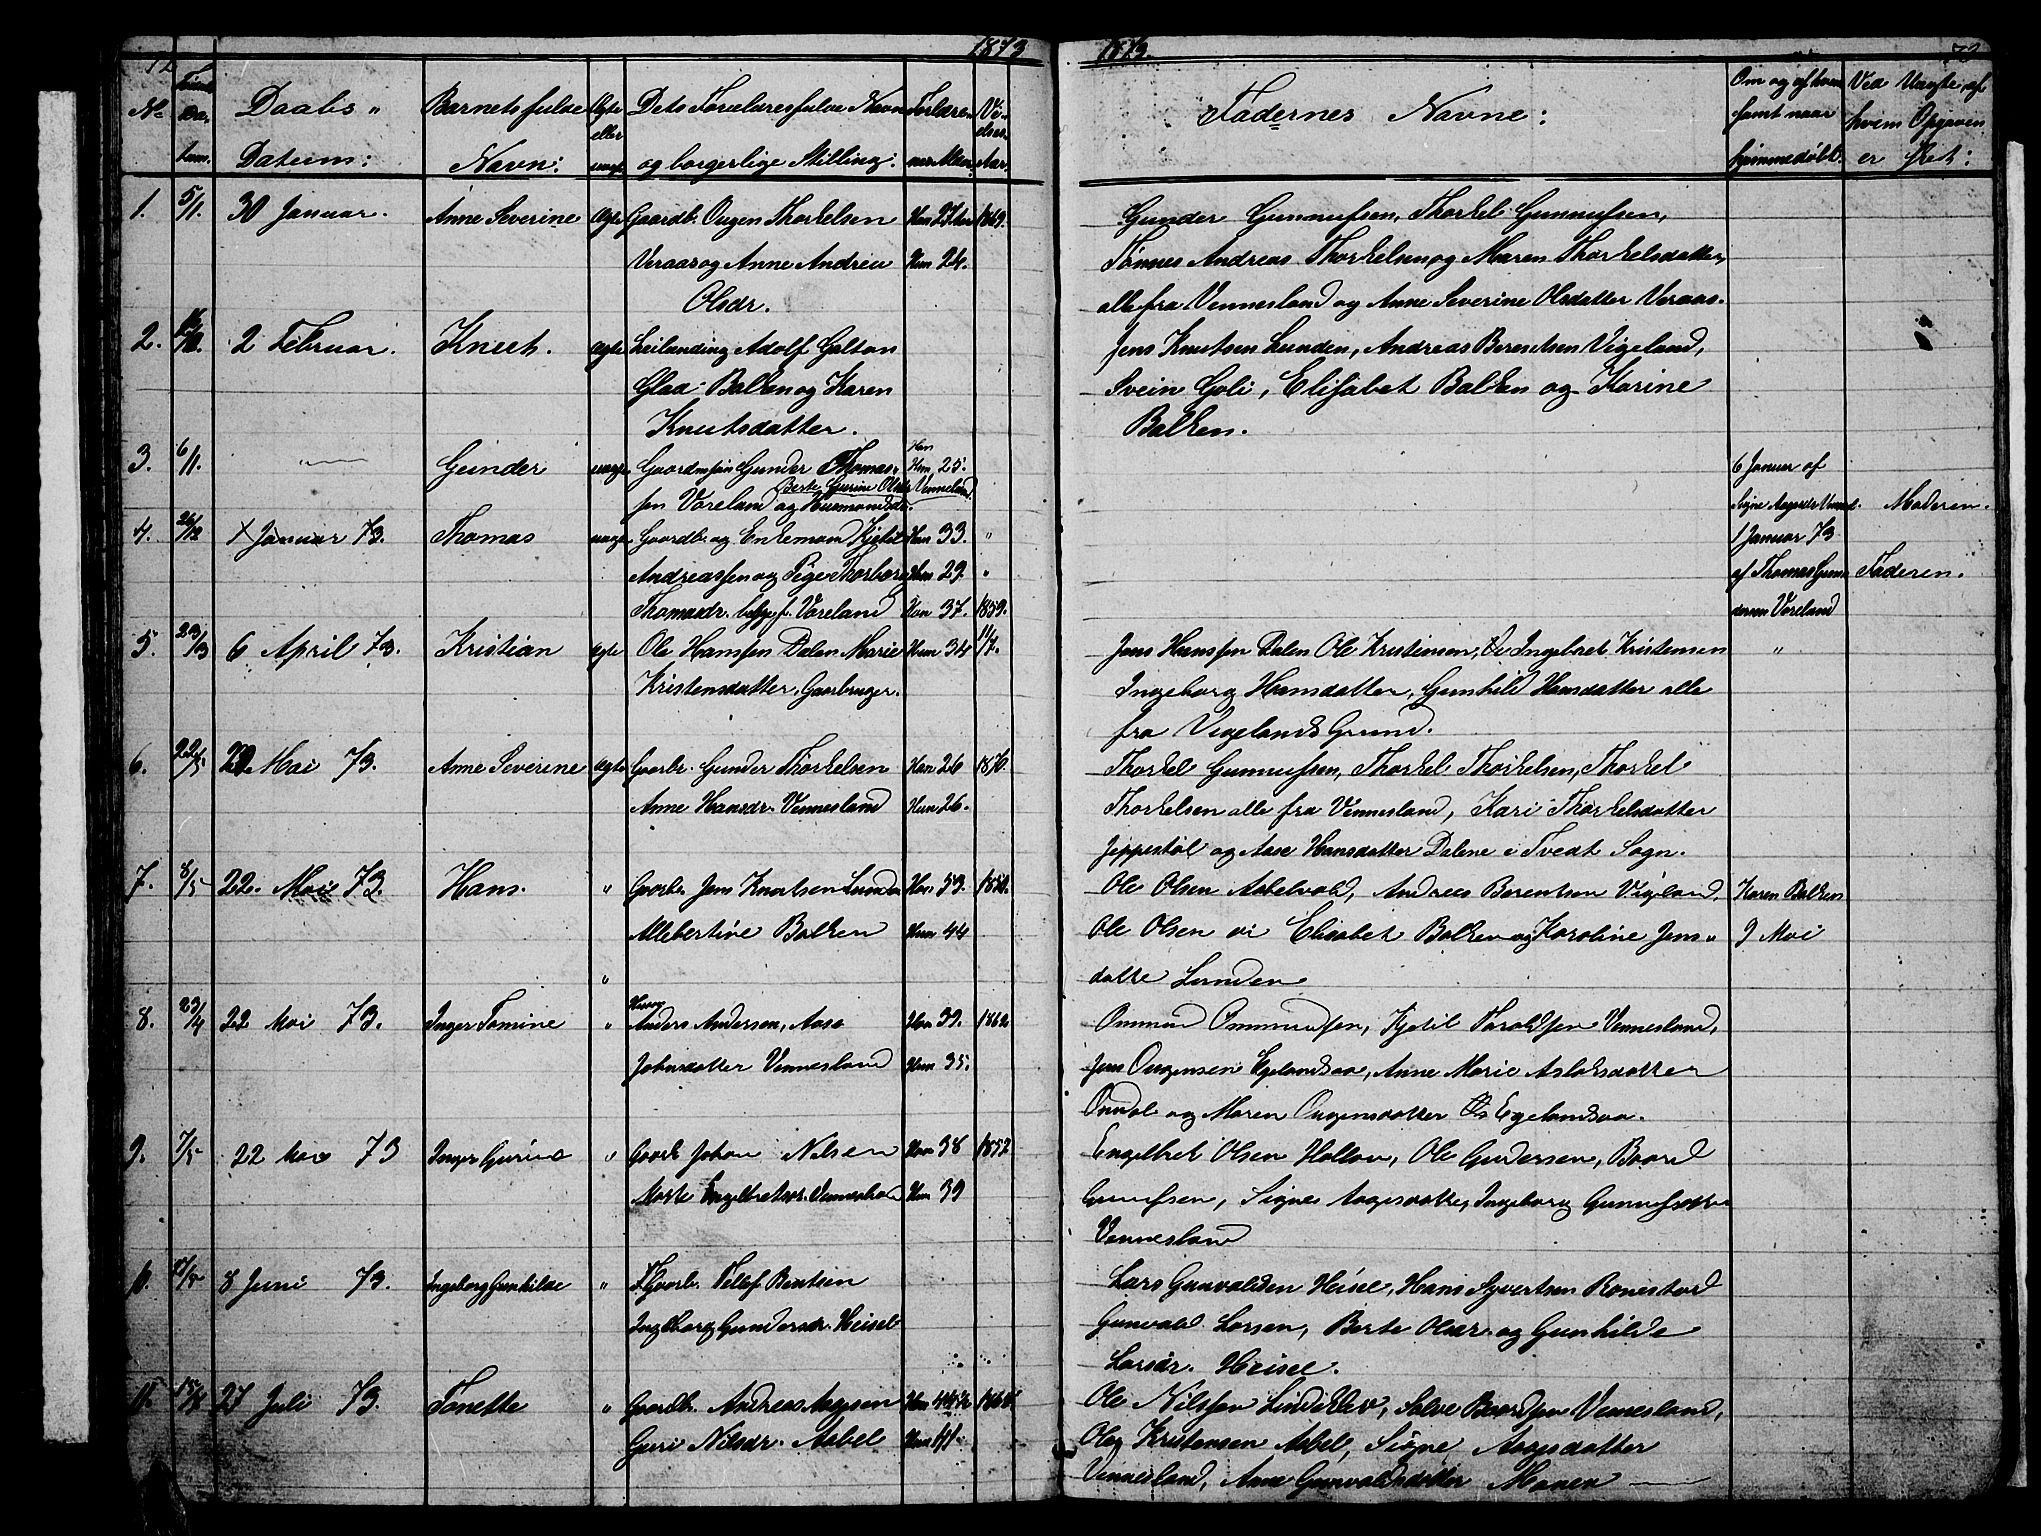 1873
1873.
No
Datum.
Daabs "
Datum:
Barnets fulde
Navn:
Ægte
eller
uægt.
Dets Forældres fulde Navn
og borgerlige Stilling:
Forældre-
nes Alder
Vi-
elses-
Aar.
Fadernes Navne:
Om og af hvem
samt naar
hjemmedøbt.
Ved Uægte, af
hvem Opgaven
er skeet:
1. 5/1. 30 Januar. Anne Severine Ægte Gaardb. Ougen Thorkelsen Han 27 1869. Gunder Gunnufsen, Thorkel Gunnufsen,
Veraas og Anne Andrea Hun 24. Tønnes Andreas Thorkelsen og Maren Thorkelsdatter,
Olsdr. alle fra Vennesland og Anne Severine Olsdatter Veraas.
2. 2 Februar. Knut. Ægte Leilænding Adolf Galton Jens Knutsen Lunden, Andreas Berentsen Vigeland,
Glad Balken og Karen Svein Goli, Elisabet Balken og Karine
Knutsdatter. Balken.
3. 6/1. " Gunder uægte Gaardm søn Gunder Thomas- Han Hun 25. 6 Januar af
Berte Gurine Olsdr Vennesland.
sen Voreland og Husmandsdr. Signe Aagesdr Vennesl. Moderen.
4. 26/12 1 Januar 73. Thomas uægte Gaardb. og Enkemand Kjetil Han 33. " 1 Januar 73
Andreassen og Pige Thorborg Hun 29. " af Thomas Gun- Faderen.
Thomasdr. begge f. Voreland Han 37. 1859. dersen Voreland
5. 23/3 6 April 73. Kristian ægte Ole Hansen Dalen Marie Hun 34 11/7. Jens Hansen Dalen Ole Kristensen, Ingebret Kristensen "
Kristensdatter. Gaarbruger. Ingeborg Hansdatter, Gunhild Hansdatter alle
fra Vigelands Grund.
6. 22/5 22 Mai 73. Anne Severine Ægte Gaarbr. Gunder Thorkelsen Han 26 1870 Thorkel Gunnufsen, Thorkel Thorkelsen, Thorkel
Anne Hansdr. Vennesland Hun 26. Thorkelsen alle fra Vennesland, Kari Thorkelsdatter
Jeppestøl og Aase Hansdatter Dalene i Tvedt Sogn.
7. 8/5 22. Mai 73. Hans. " Gaarbr. Jens Knutsen Lunden Han 53. Ole Olsen Aabelvold, Andreas Berentsen Vigeland, Karen Balken
Allebertine Balken Hun 44 Ole Olsen Elisabet Balken og Karoline Jens- 9 Mai
" datte Lunden
8. 23/4 22 Mai 73. Inger Tomine " Anders Andersen, Aase Han 39. 1862 Ommund Ommundsen, Kjetil Taraldsen Vennesland,
Johnsdatter Vennesland Hun 35. Jens Ougensen Egelandsaa, Anne Marie Aslaksdatter
Omdal og Maren Ougensdatter Egelandsaa.
9. 7/5 22 Mai 73 Inger Gurine " Gaarb. Johan Nilsen Han 38 1857 Engelbret Olsen Hallan, Ole Gundersen, Baard
Marte Engelbretsdr. Vennesland Hun 39 Gunnufsen, Signe Aagesdatter, Ingeborg Gunnufsdatter
Vennesland
10. 17/5 8 Juni 73. Ingeborg Gunhilde " Gaarb. Tellef Bentsen Lars Gunvaldsen Heisel, Hans Syvertsen Ronestad
Ingeborg Gundersdr. Heisel Gunvald Larsen, Berte Olsdr. og Gunhilde
Larsdr. Heisel.
11. 27 Juli 73. Tonette " Gaardb. Andreas Aagesen Han 44 Ole Nilssen Lindekleiv, Salve Baardsen Vennesland,
Guri Nilsdr. Aabel Hun 41. Ole Kristensen Aabel, Signe Aagesdatter
Vennesland, Anne Gunvaldsdatter Moner